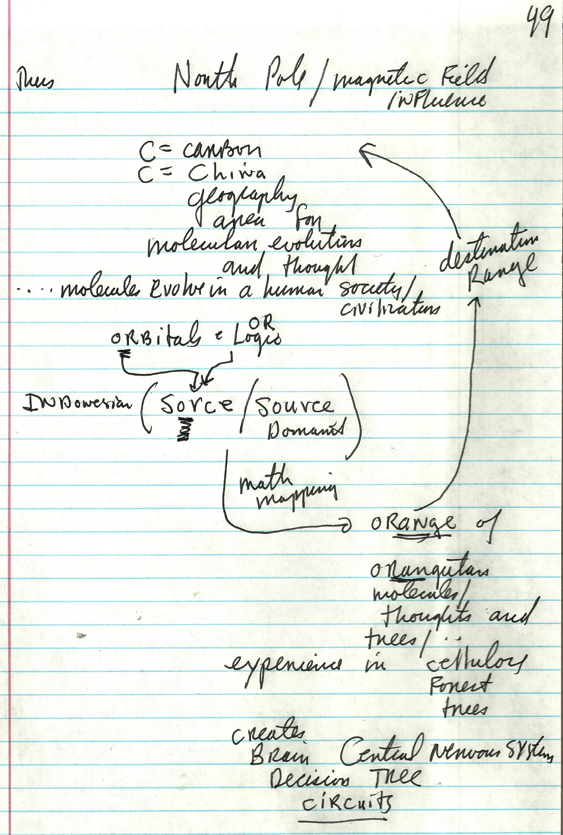 49
Thus North Pole / magnetic Field
influence
C = carbon
C = China
geography
area for
molecular evolution
and thought
destination
Range
.... molecules Evolve in a human society /
civilization
OR
ORBitals = Logic
INDonesian ( Sorce / Source
Domain )
math
mapping
ORANGE of
orangutan
molecules /
thoughts and
trees / ..
experience in cellulose
Forest
trees
creates
Brain Central Nervous System
Decision Tree
circuits